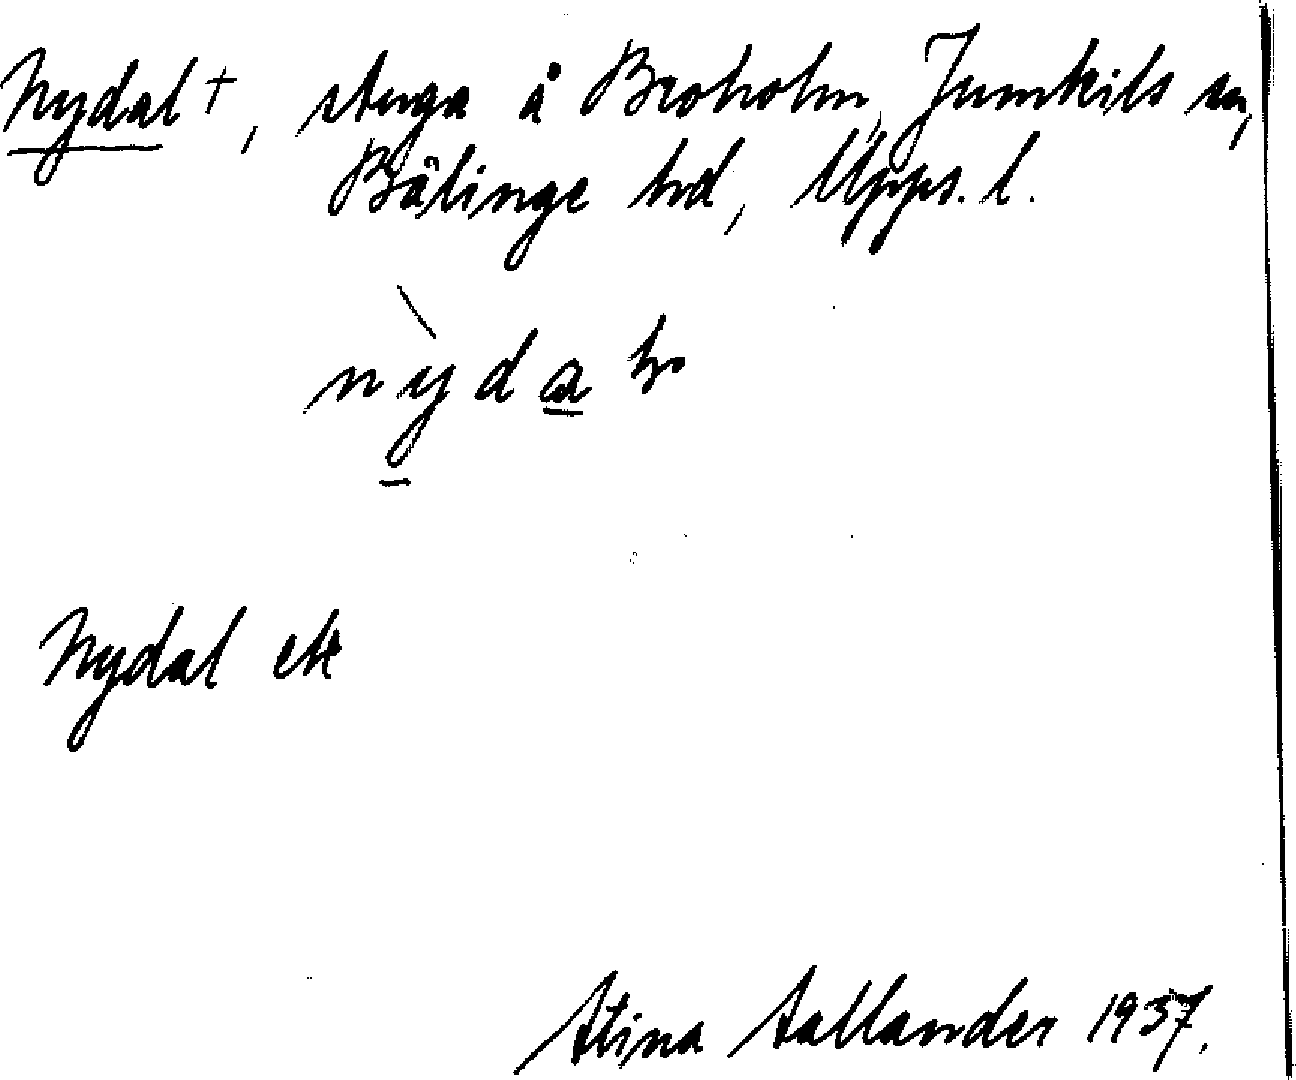 Nydal †, stuga å Broholm, Jumkils sn,
Bälinge hd, Upps. l.
Nydal ek
Stina Sallander 1937.